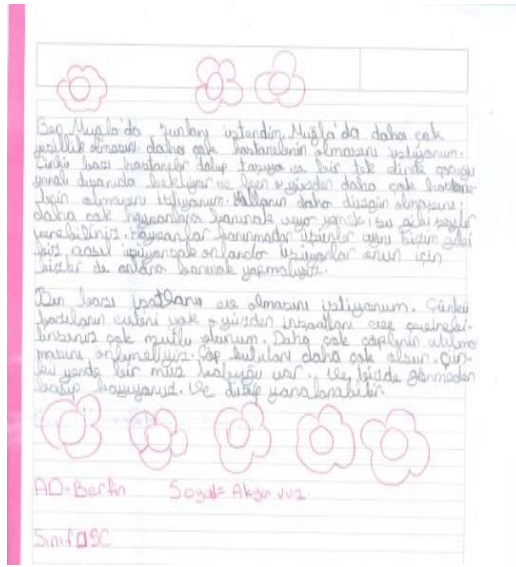 Ben Muğla'da şunları istendim. Muğla'da daha çok
yeşillik olmasını daha çok hastanelinin olmasını istiyorum.
Çünkü bazı hastaneler dolup taşıyo ve bir tek elinde çocuğu
yaralı dışarıda bekliyor ve ben o yüzden daha çok hastane
için olmasını istiyorum. Yolların daha düzgün olmasını,
daha çok hayvanlara barınak veya yemek, su gibi şeyler
verebiliriz. Hayvanlar barınmadan üşürler aynı bizim gibi
biz nasıl üşüyorsak onlarda üşüyorlar onun için
bizler de onlara barınak yapmalıyız.
Ben bazı ev olmasını istiyorum. Çünkü
bazıların evleri yok o yüzden inşaatları eve çevirebi-
lirseniz çok mutlu olurum. Daha çok çöplerin atılma
masını önlemeliyiz. Çöp kutuları daha çok olsun. Çün-
kü yerde bir muz kabuğu var. Ve bizde görmeden
basıp kayıyoruz. Ve düşüp yaralanabilir.
AD=Berfin Soyad=Akyavuz
Sınıf 5C